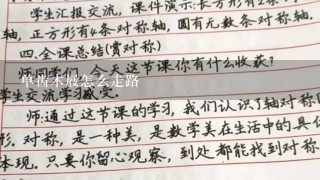 学生汇报交流，课件演示：长方形有2条
轴，正方形有4条对称轴，圆有无数条对称轴.
四.全课总结(赏对称)
师：同学们，今天这节课你有什么收获？
单齿木屐怎么走路
学生交流学习感受.
师：通过这节课的学习，我们认识了轴对称
形.对称，是一种美，是数学美在生活中的具
体现.只要你留心观察，到处都能找到对称